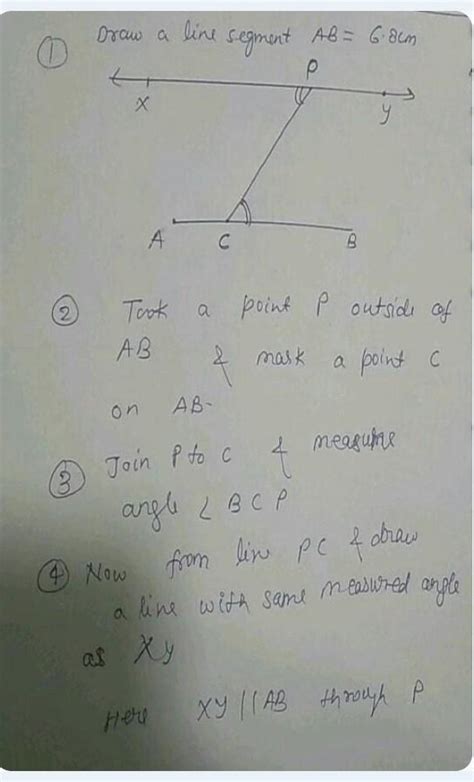 ① Draw a line segment AB = 6.8cm
P
X
y
A
C
B
② Took a point P outside of
AB & mark a point C
on AB-
③ Join P to C & measure
angle ∠ BCP
④ Now from line PC & draw
a line with same measured angle
as Xy
Here XY || AB through P